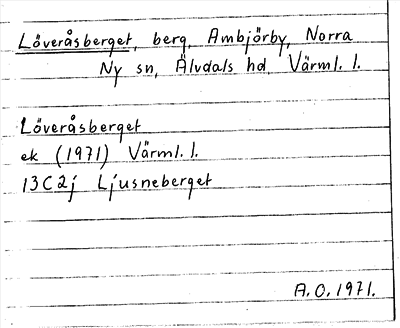 Löveråsberget, berg Ambjörby, Norra
Ny sn, Älvdals hd, Värml. l.
Löveråsberget
ek (1971) Värml. l.
13C2j Ljusneberget
A.O. 1971.